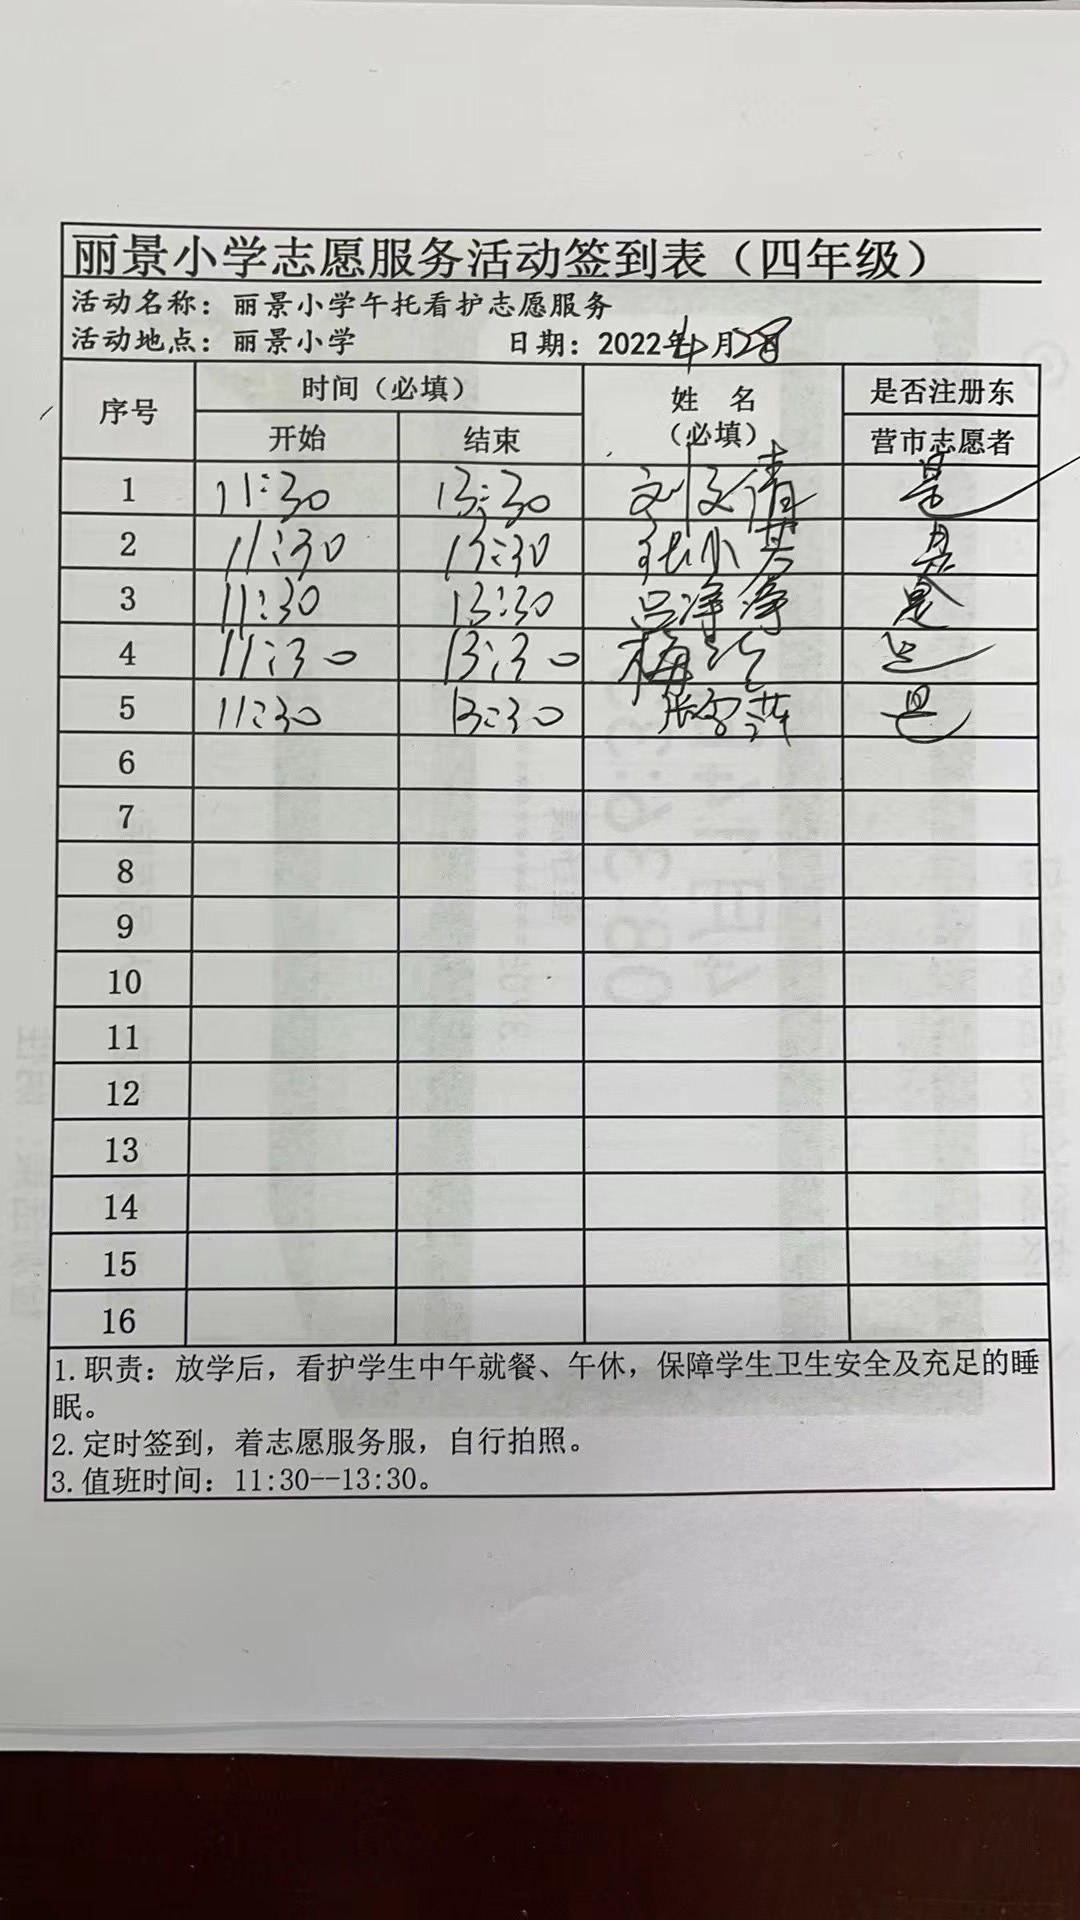 丽景小学志愿服务活动签到表（四年级）
活动名称：丽景小学午托看护志愿服务
活动地点：丽景小学 日期：2022年4月28日
序号 时间（必填） 姓 名（必填） 是否注册东营市志愿者
开始 结束
1 11:30 13:30 刘文倩 是
2 11:30 13:30 张小芬 是
3 11:30 13:30 吕净净 是
4 11:30 13:30 梅 是
5 11:30 13:30 是
6
7
8
9
10
11
12
13
14
15
16
1.职责：放学后，看护学生中午就餐、午休，保障学生卫生安全及充足的睡
眠。
2.定时签到，着志愿服务服，自行拍照。
3.值班时间：11:30--13:30。